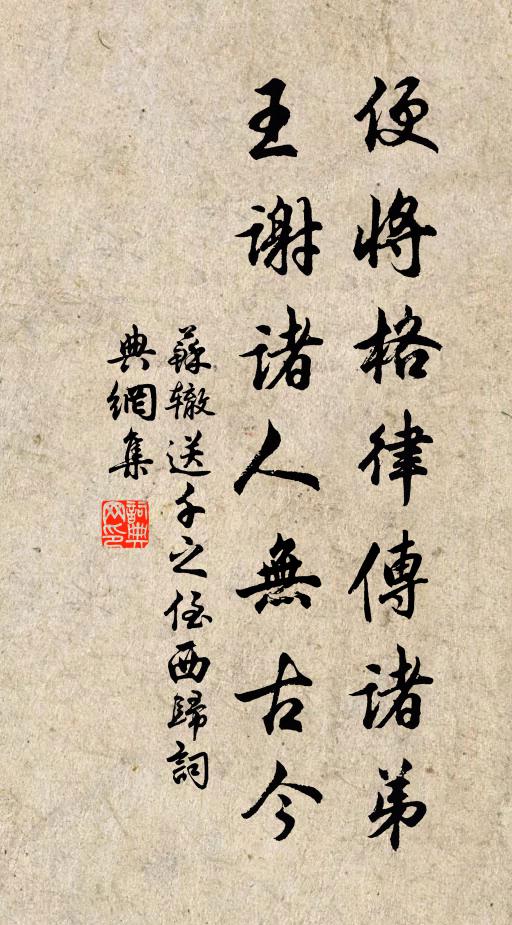 便將格律傳諸弟
王謝諸人無古今
蘇辙送千之侄西歸詞
典網集
詞典
网印